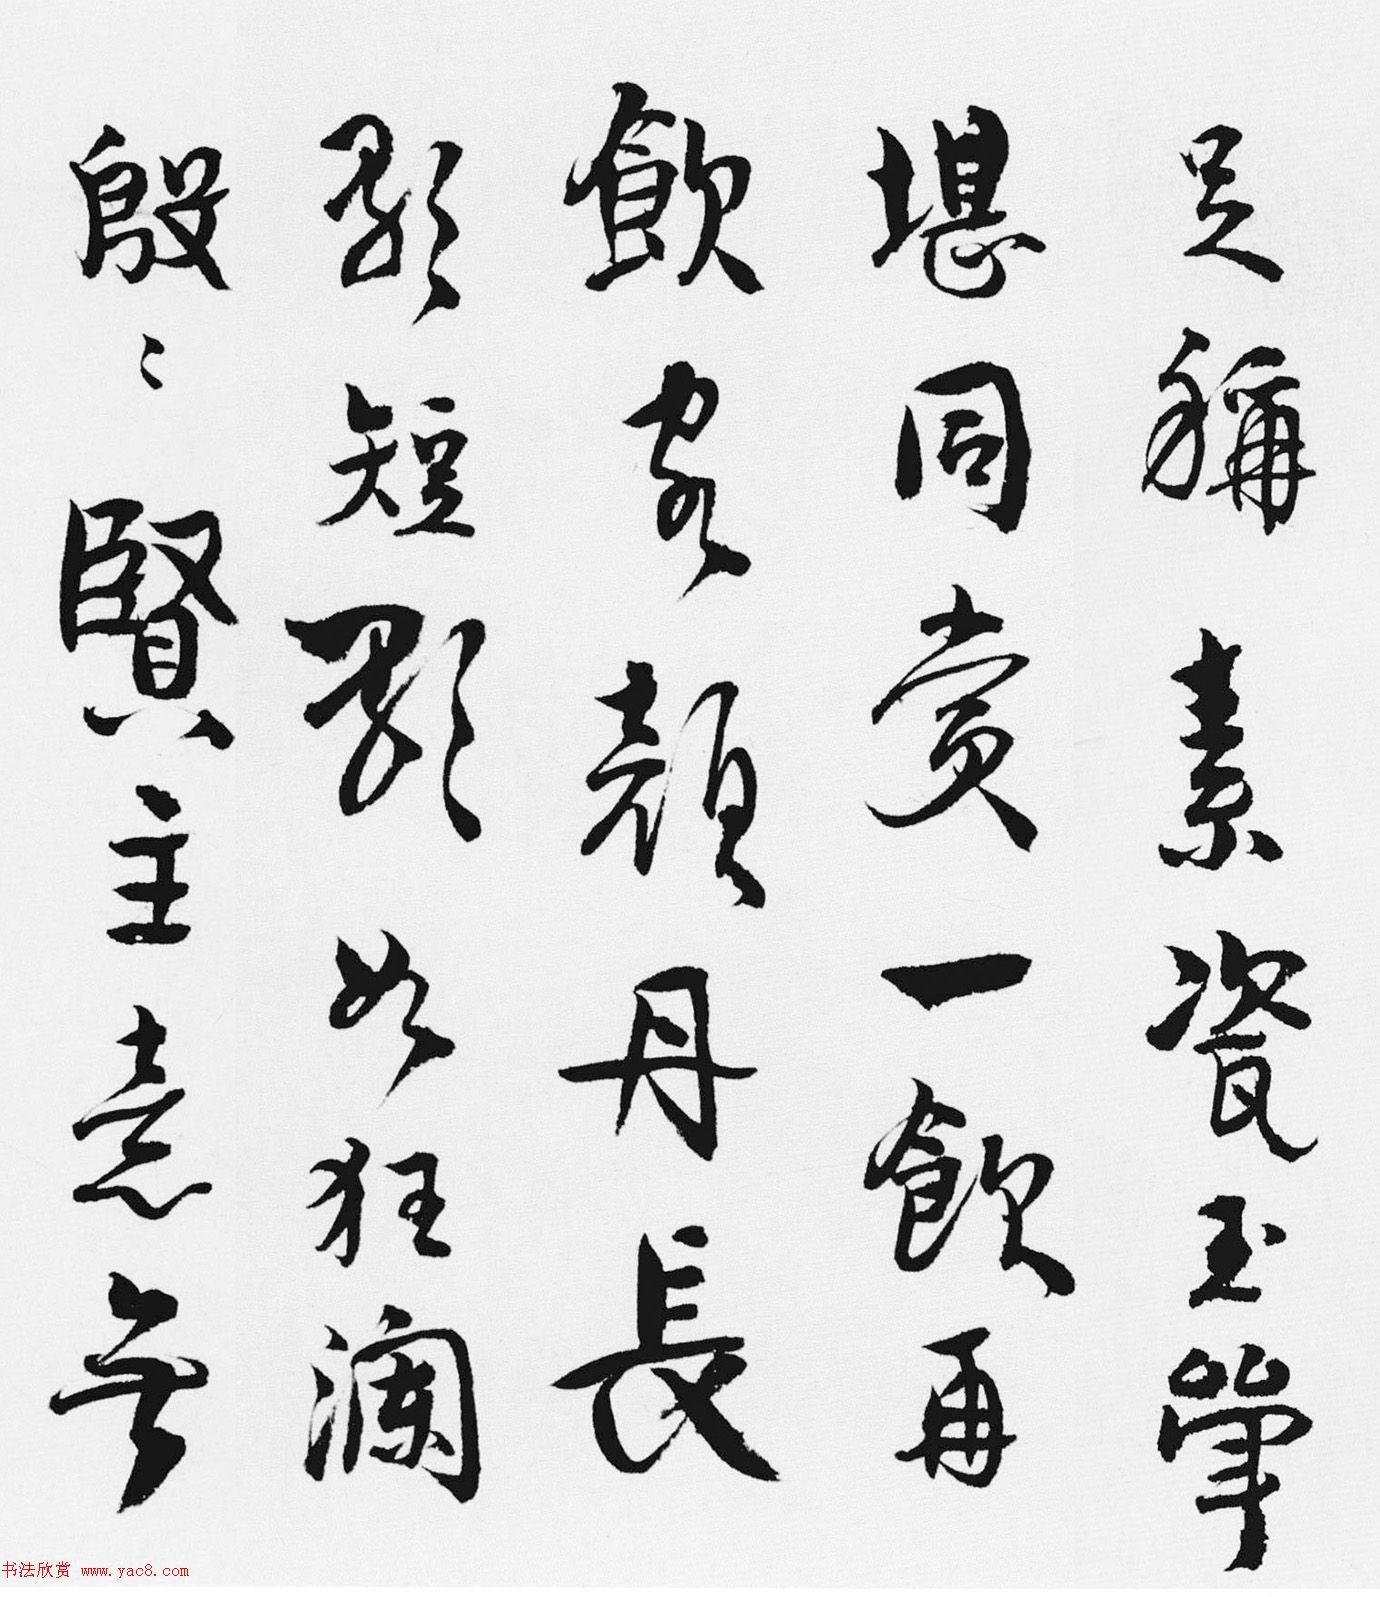 足稱素瓷玉
堪同賞一飲再
飲客顏丹長
歌短歌如狂瀾
殷〻賢主意無
书法欣赏 www.yac8.com